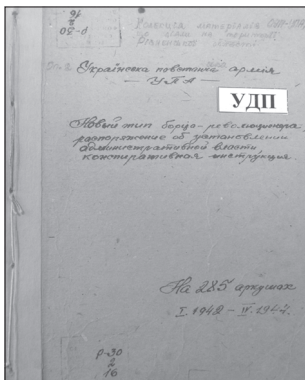 16
2
р-30
Українська повстанча армія
— УПА —
УДП
Новый тип борца-революцинера
распоряжение об установлении
административной власти,
конспиративная инструкция
На 285 аркушах
I. 1942 – IV. 1947.
р-30
2
16